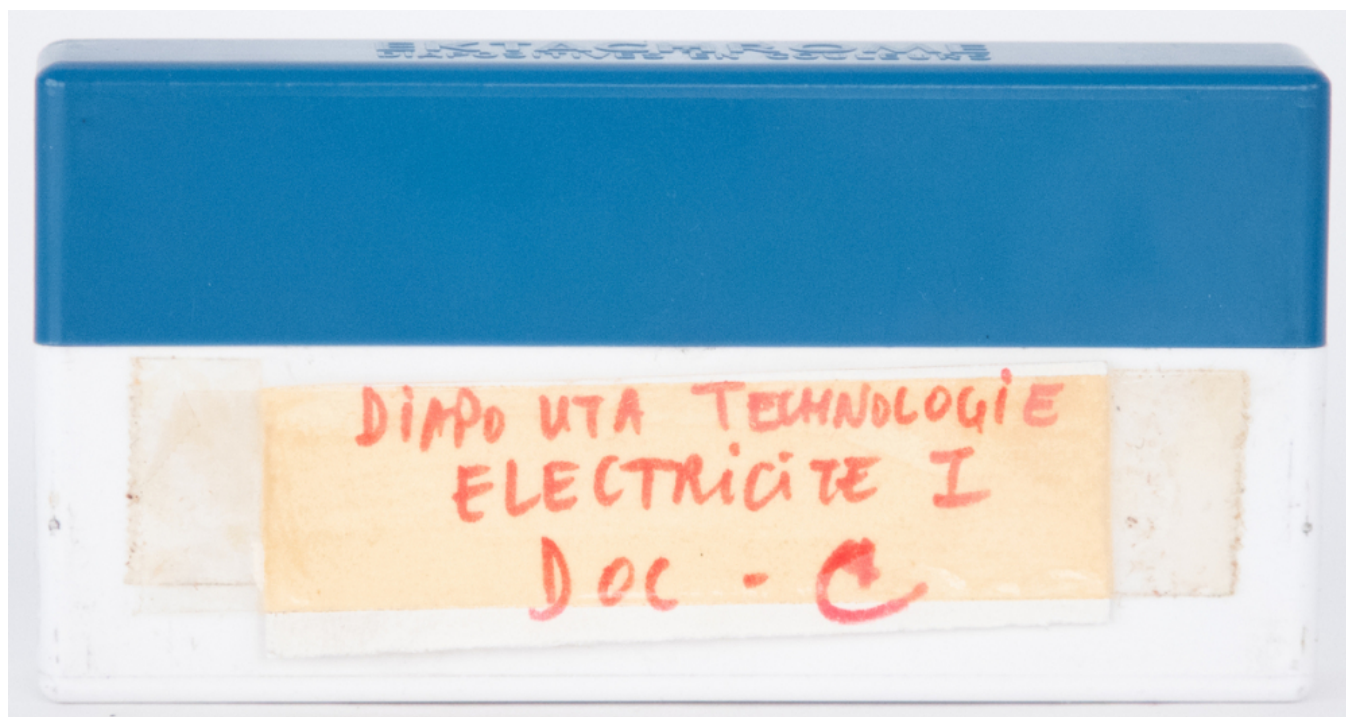 EKTACHROME
DIAPOSITIVES EN COULEURS
DiAPO UTA TECHNOLOGiE
ELECTRiCiTE I
DOC - C